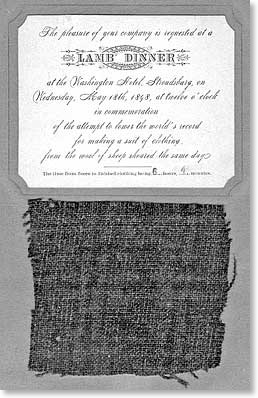 The pleasure of your company is requested at a
LAMB DINNER
at the Washington Hotel, Stroudsburg, on
Wednesday, May 18th, 1898, at twelve o'clock
in commemoration
of the attempt to lower the world's record
for making a suit of clothing
from the wool of sheep sheared the same day
The time from fleece to finished clothing being 6 hours, minutes.